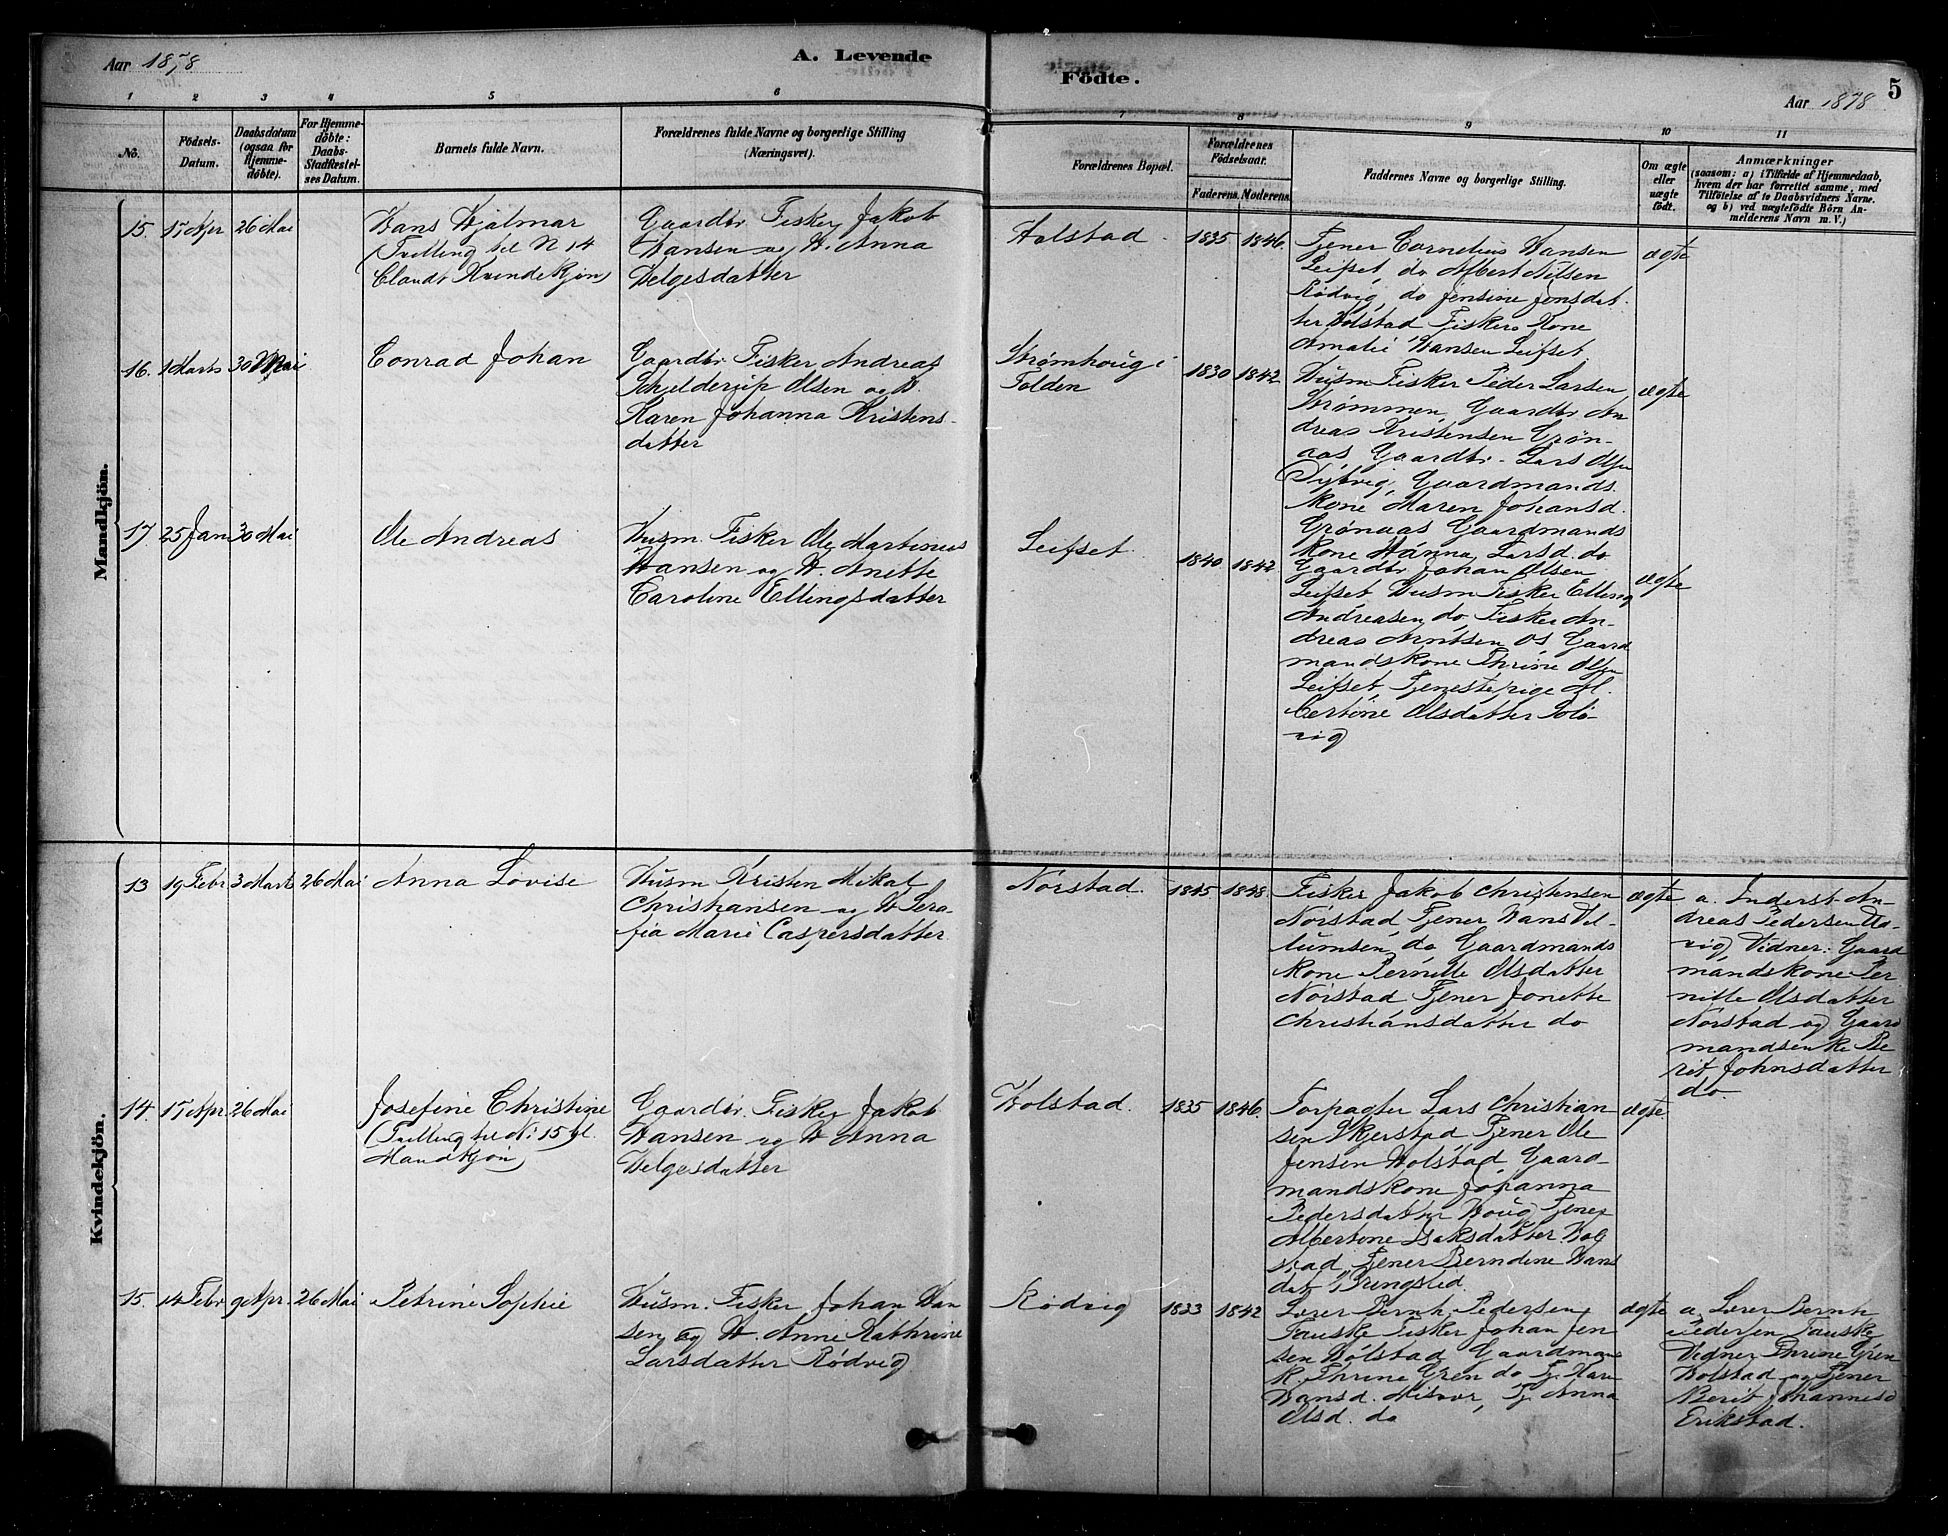 Aar 1878
A. Levende
Födte.
5
Aar 1878
1 2 3 4 5 6 7 8 9 10 11
No.
Födsels-
Datum.
Daabsdatum
(ogsaa for
Hjemme-
döbte).
For Hjemme-
döbte:
Daabs-
Stadfæstel-
ses Datum.
Barnets fulde Navn.
Forældrenes fulde Navne og borgerlige Stilling
(Næringsvei).
Forældrenes Bopæl.
Forældrenes
Födselsaar.
Faderens. Moderens.
Faddernes Navne og borgerlige Stilling.
Om ægte
eller
uægte
födt.
Anmærkninger
(saasom: a) i Tilfælde af Hjemmedaab,
hvem der har forrettet samme, med
Tilföielse af to Daabsvidners Navne.
og b) ved uægtefödte Börn An-
melderens Navn m. V.)
Mandkjön.
15. 17 Apr 26 Mai
Hans Hjalmar
(Tvilling til N 14
blandt Kvindekjøn)
Gaardbr. Fisker Jakob
Hansen og H. Anna
Helgesdatter
Holstad
1835 1846
Tjener Cornelius Hansen
Leifset, do Albert Nilsen
Rødvig, do Jensine Jensdat-
ter Holstad Fiskers Kone
Amalie Hansen Leifset
ægte
16. 1 Marts 30 Mai
Conrad Johan
Gaardbr. Fisker Andreas
Schjelderup Olsen og H.
Karen Johanna Kristens-
datter
Strømhoug i
Folden
1830 1842
Husm Fisker Peder Larsen
Strømmen, Gaardbr. An
dreas Kristensen Grøn-
aas, Gaardbr. Lars Olsen
Dybvig, Gaardmands
Kone Maren Johansd.
Grønaas Gaardmands
Kone Hanna Larsd. do
ægte
17. 25 Jan 30 Mai
Ole Andreas
Husm Fisker Ole Martinus
Hansen og H. Anette
Caroline Ellingsdatter
Leifset
1840 1842
Gaardbr Johan Olsen
Leifset Husm Fisker Elling
Andreasen do, Fisker An-
dreas Arntsen Os Gaard
mandskone Thrine Olsen
Leifset, Tjenestepige Al-
bertine Olsdatter
ægte
Kvindekjön.
13 19 Febr 3 Marts 26 Mai
Anna Lovise
Husm Kristen Mikal
Christiansen og H Sera-
fia Marie Caspersdatter
Norstad.
1845 1848
Fisker Jakob Christensen
Norstad Tjener Hans Vil-
lumsen do Gaardmands
Kone Pernille Olsdatter
Norstad Tjener Jonette
Christiansdatter do
ægte
a. Inderst An-
dreas Pedersen
Vidner: Gaard
mandskone Per
nille Olsdatter
Norstad og Gaard
mandsenke Be
rit Johnsdatter
do.
14. 17 Apr. 26 Mai
Josefine Christine
(Tvilling til N: 15 bl.
Mandkjøn)
Gaardbr. Fisker Jakob
Hansen og H Anna
Helgesdatter
Holstad.
1835 1846
Forpagter Lars Christian
sen Skjerstad Tjener Ole
Jensen Holstad, Gaard-
mandskone Johanna
Pedersdatter Houg Tjener
Albertine Isaksdatter Hol
stad, Tjener Berndine Hans
dat Brengsled.
ægte
15. 14 Febr 9 Apr. 26 Mai
Petrine Sophie
Husm. Fisker Johan Han
sen og H. Anne Kathrine
Larsdatter Rødvig
Rødvig
1833 1842
Lærer Bernh. Pedersen
Fauske Fisker Johan Jen
sen Holstad Gaardmans
K. Thrine Gren do Tj. Kar
Hansd. Tj. Anna
Olsd. do
ægte
a. Lærer Bernh
Pedersen Fauske
Vidner Thrine Gren
Holstad og Tjener
Berit Johannesd
Erikstad.